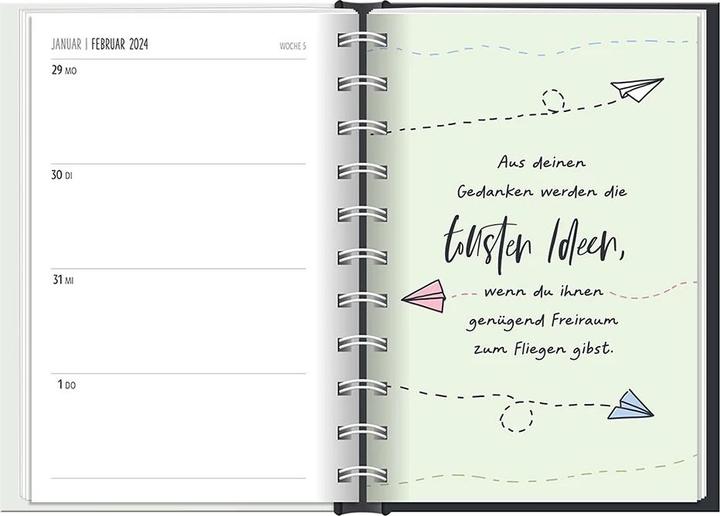 JANUAR | FEBRUAR 2024 WOCHE 5
29 MO
30 DI
31 MI
1 DO
Aus deinen
Gedanken werden die
tollsten Ideen,
wenn du ihnen
genügend Freiraum
zum Fliegen gibst.